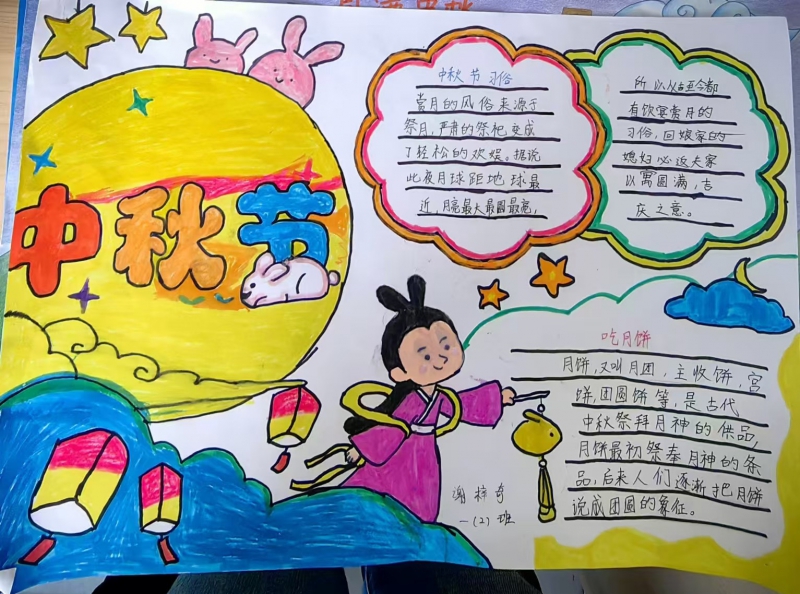 中秋节
中秋节习俗
赏月的风俗来源于
祭月,严肃的祭祀变成
了轻松的欢娱。据说
此夜月球距地球最
近,月亮最大最圆最亮,
所以从古至今都
有饮宴赏月的
习俗,回娘家的
媳妇必返夫家
以寓圆满,吉
庆之意。
吃月饼
月饼,又叫月团,主收饼,宫
饼,团圆饼等,是古代
中秋祭拜月神的供品,
月饼最初祭奉月神的祭
品,后来人们逐渐把月饼
说成团圆的象征。
谢梓奇
一(2)班